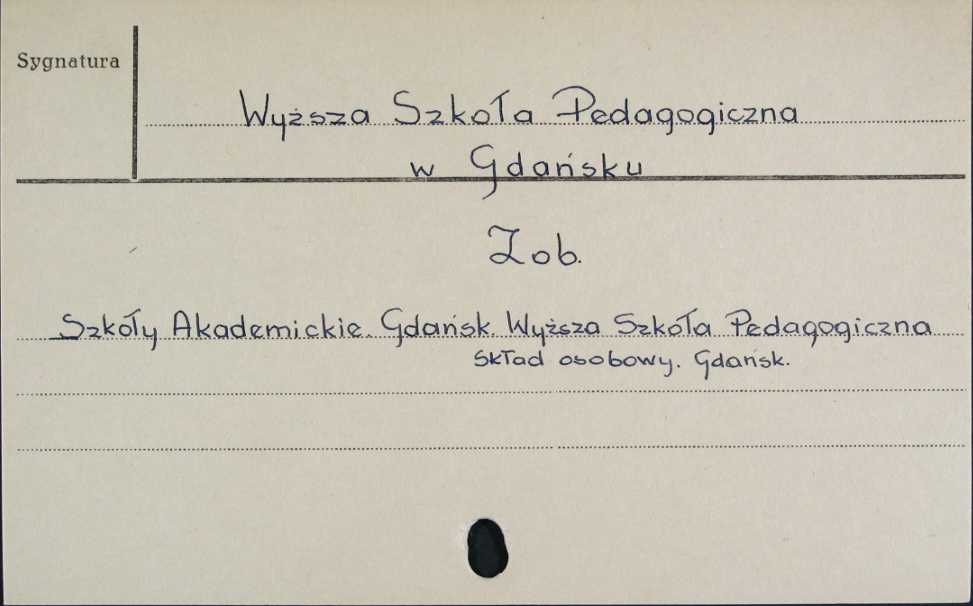 Sygnatura
Wyższa Szkoła Pedagogiczna
w Gdańsku
Zob.
Szkoły Akademickie. Gdańsk. Wyższa Szkoła Pedagogiczna
Skład osobowy. Gdańsk.